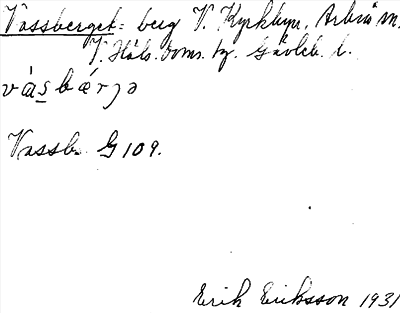 Vassberget: berg V. Kyrkbyn. Arbrå sn.
V. Häls. doms. tg. Gävleb. l.
vás̲bǽrjə
Vassb. G 109.
Erik Eriksson 1931